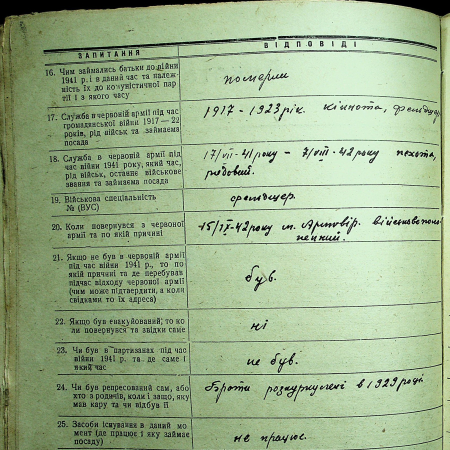 ЗАПИТАННЯ
ВІДПОВІДІ
16. Чим займались батьки до війни
1941 р. і в даний час та належ-
ність їх до комуністичної пар-
тії і з якого часу
померли
17. Служба в червоній армії під час
громадянської війни 1917—22
років, рід військ та займаема
посада
1917 - 1923 рік. кіннота, фельдшер
18. Служба в червоній армії під
час війни 1941 року, який час,
рід військ, останне військове
звання та займаема посада
17/VII-41 року - 7/VIII-42 року піхота,
рядовий.
19. Військова спеціальність
№ (ВУС)
фельдшер.
20. Коли повернувся з червоної
армії та по якій причині
15/IX-42 року м. Армовір. військовопо-
ленний.
21. Якщо не був в червоній армії
під час війни 1941 р., то по
якій причині та де перебував
підчас відходу червоної армії
(чим може підтвердити, а коли
свідками то їх адреса)
був.
22. Якщо був евакуйований, то ко-
ли повернувся та звідки саме
ні
23. Чи був в партизанах під час
війни 1941 р. та де саме і
який час
не був.
24. Чи був репресований сам, або
хто з родичів, коли і защо, яку
мав кару та чи відбув її
Брата розкуркулені в 1929 році
25. Засоби існування в даний мо-
мент (де працює і яку займає
посаду)
не працює.